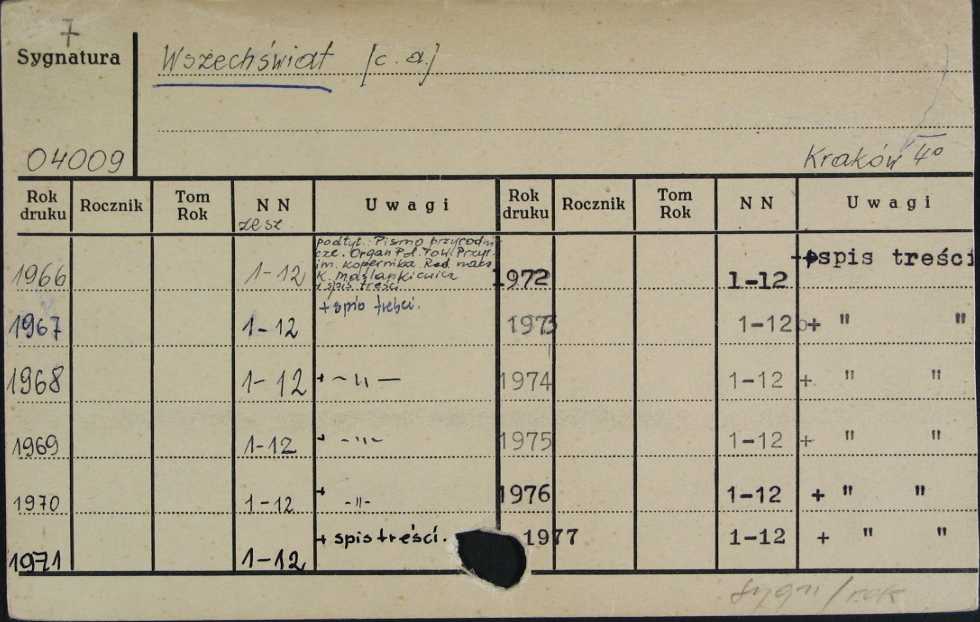 7
Sygnatura
Wszechświat [c. a.]
04009
Kraków 4°
Rok druku Rocznik Tom Rok N N zesz. Uwagi Rok druku Rocznik Tom Rok N N Uwagi
1966 1-12
podtyt.: Pismo przyrodni-
cze. Organ Pol. Tow. Przyr.
im. Kopernika Red. nacz.
K. Maślankiewicz
+ spis treści.
1972 1-12 + spis treści
1967 1-12 + spis treści. 1973 1-12 + " "
1968 1-12 + - " - 1974 1-12 + " "
1969 1-12 + - " - 1975 1-12 + " "
1970 1-12 + - " - 1976 1-12 + " "
1971 1-12 + spis treści. 1977 1-12 + " "
sygn/rok